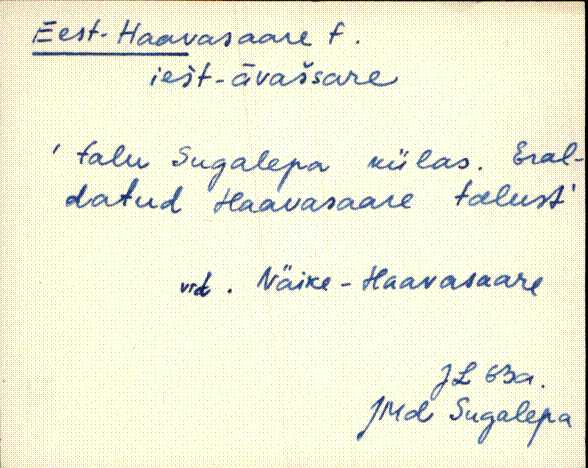 Eest-Haavasaare t.
iešt-āvašsare
' talu Sugalepa külas. Eral-
datud Haavasaare talust'
vrd. Näike-Haavasaare
JL 63a.
JMd Sugalepa